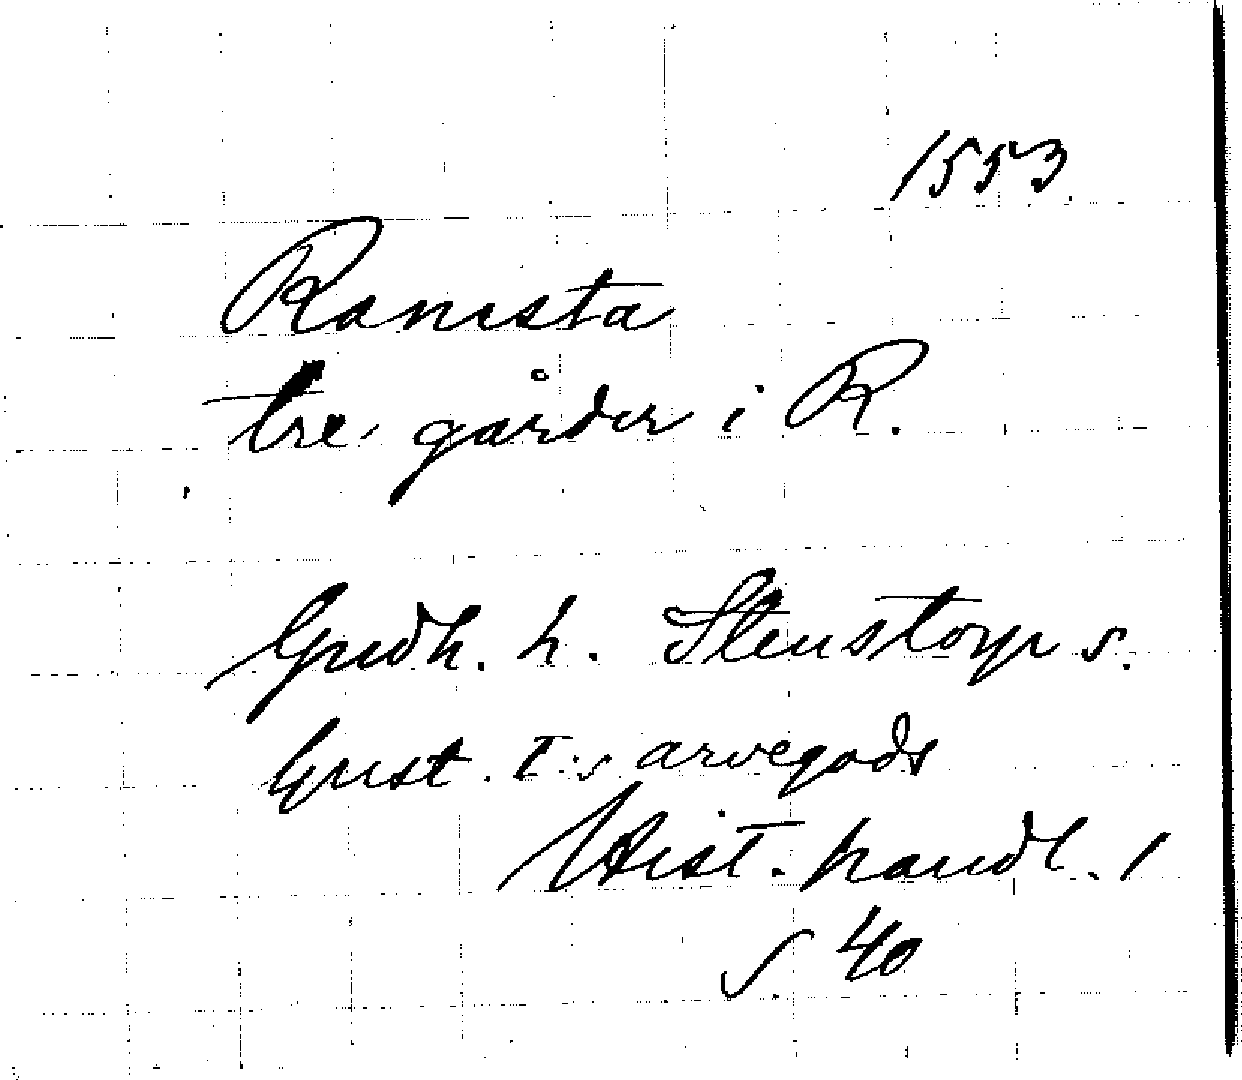 1553
Ranista
tre gårder i R.
Gudh. h. Stenstorp s.
Gust. I:s arvegods
Hist. handl. 1
s. 40